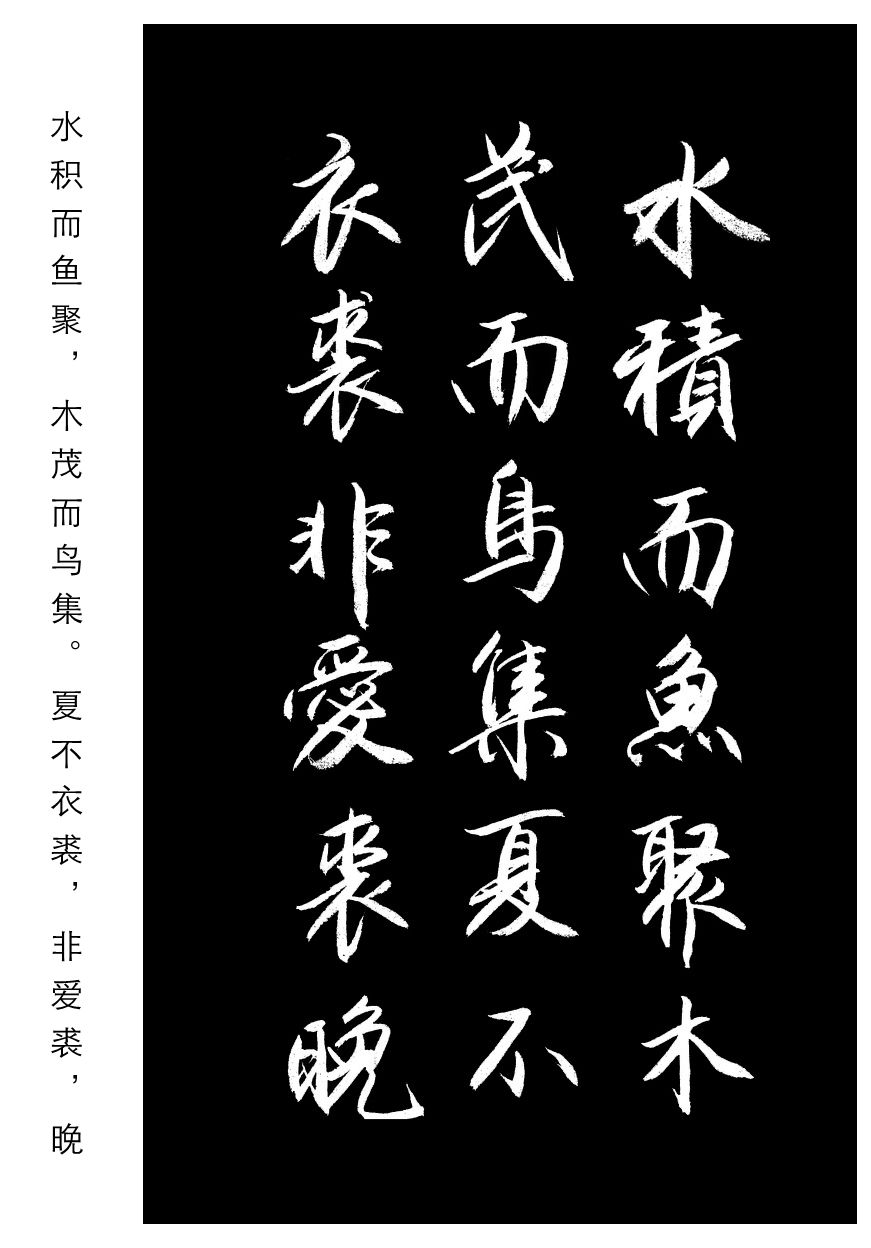 水积而鱼聚，木茂而鸟集。夏不衣裘，非爱裘，晚
水積而魚聚木
茂而鳥集夏不
衣裘非愛裘晚